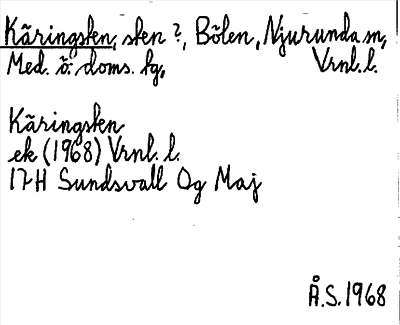 Käringsten, sten?, Bölen, Njurunda sn,
Med. ö. doms. hg, Vrnl. l.
Käringsten
ek (1968) Vrnl. l.
17H Sundsvall Og Maj
Å.S. 1968